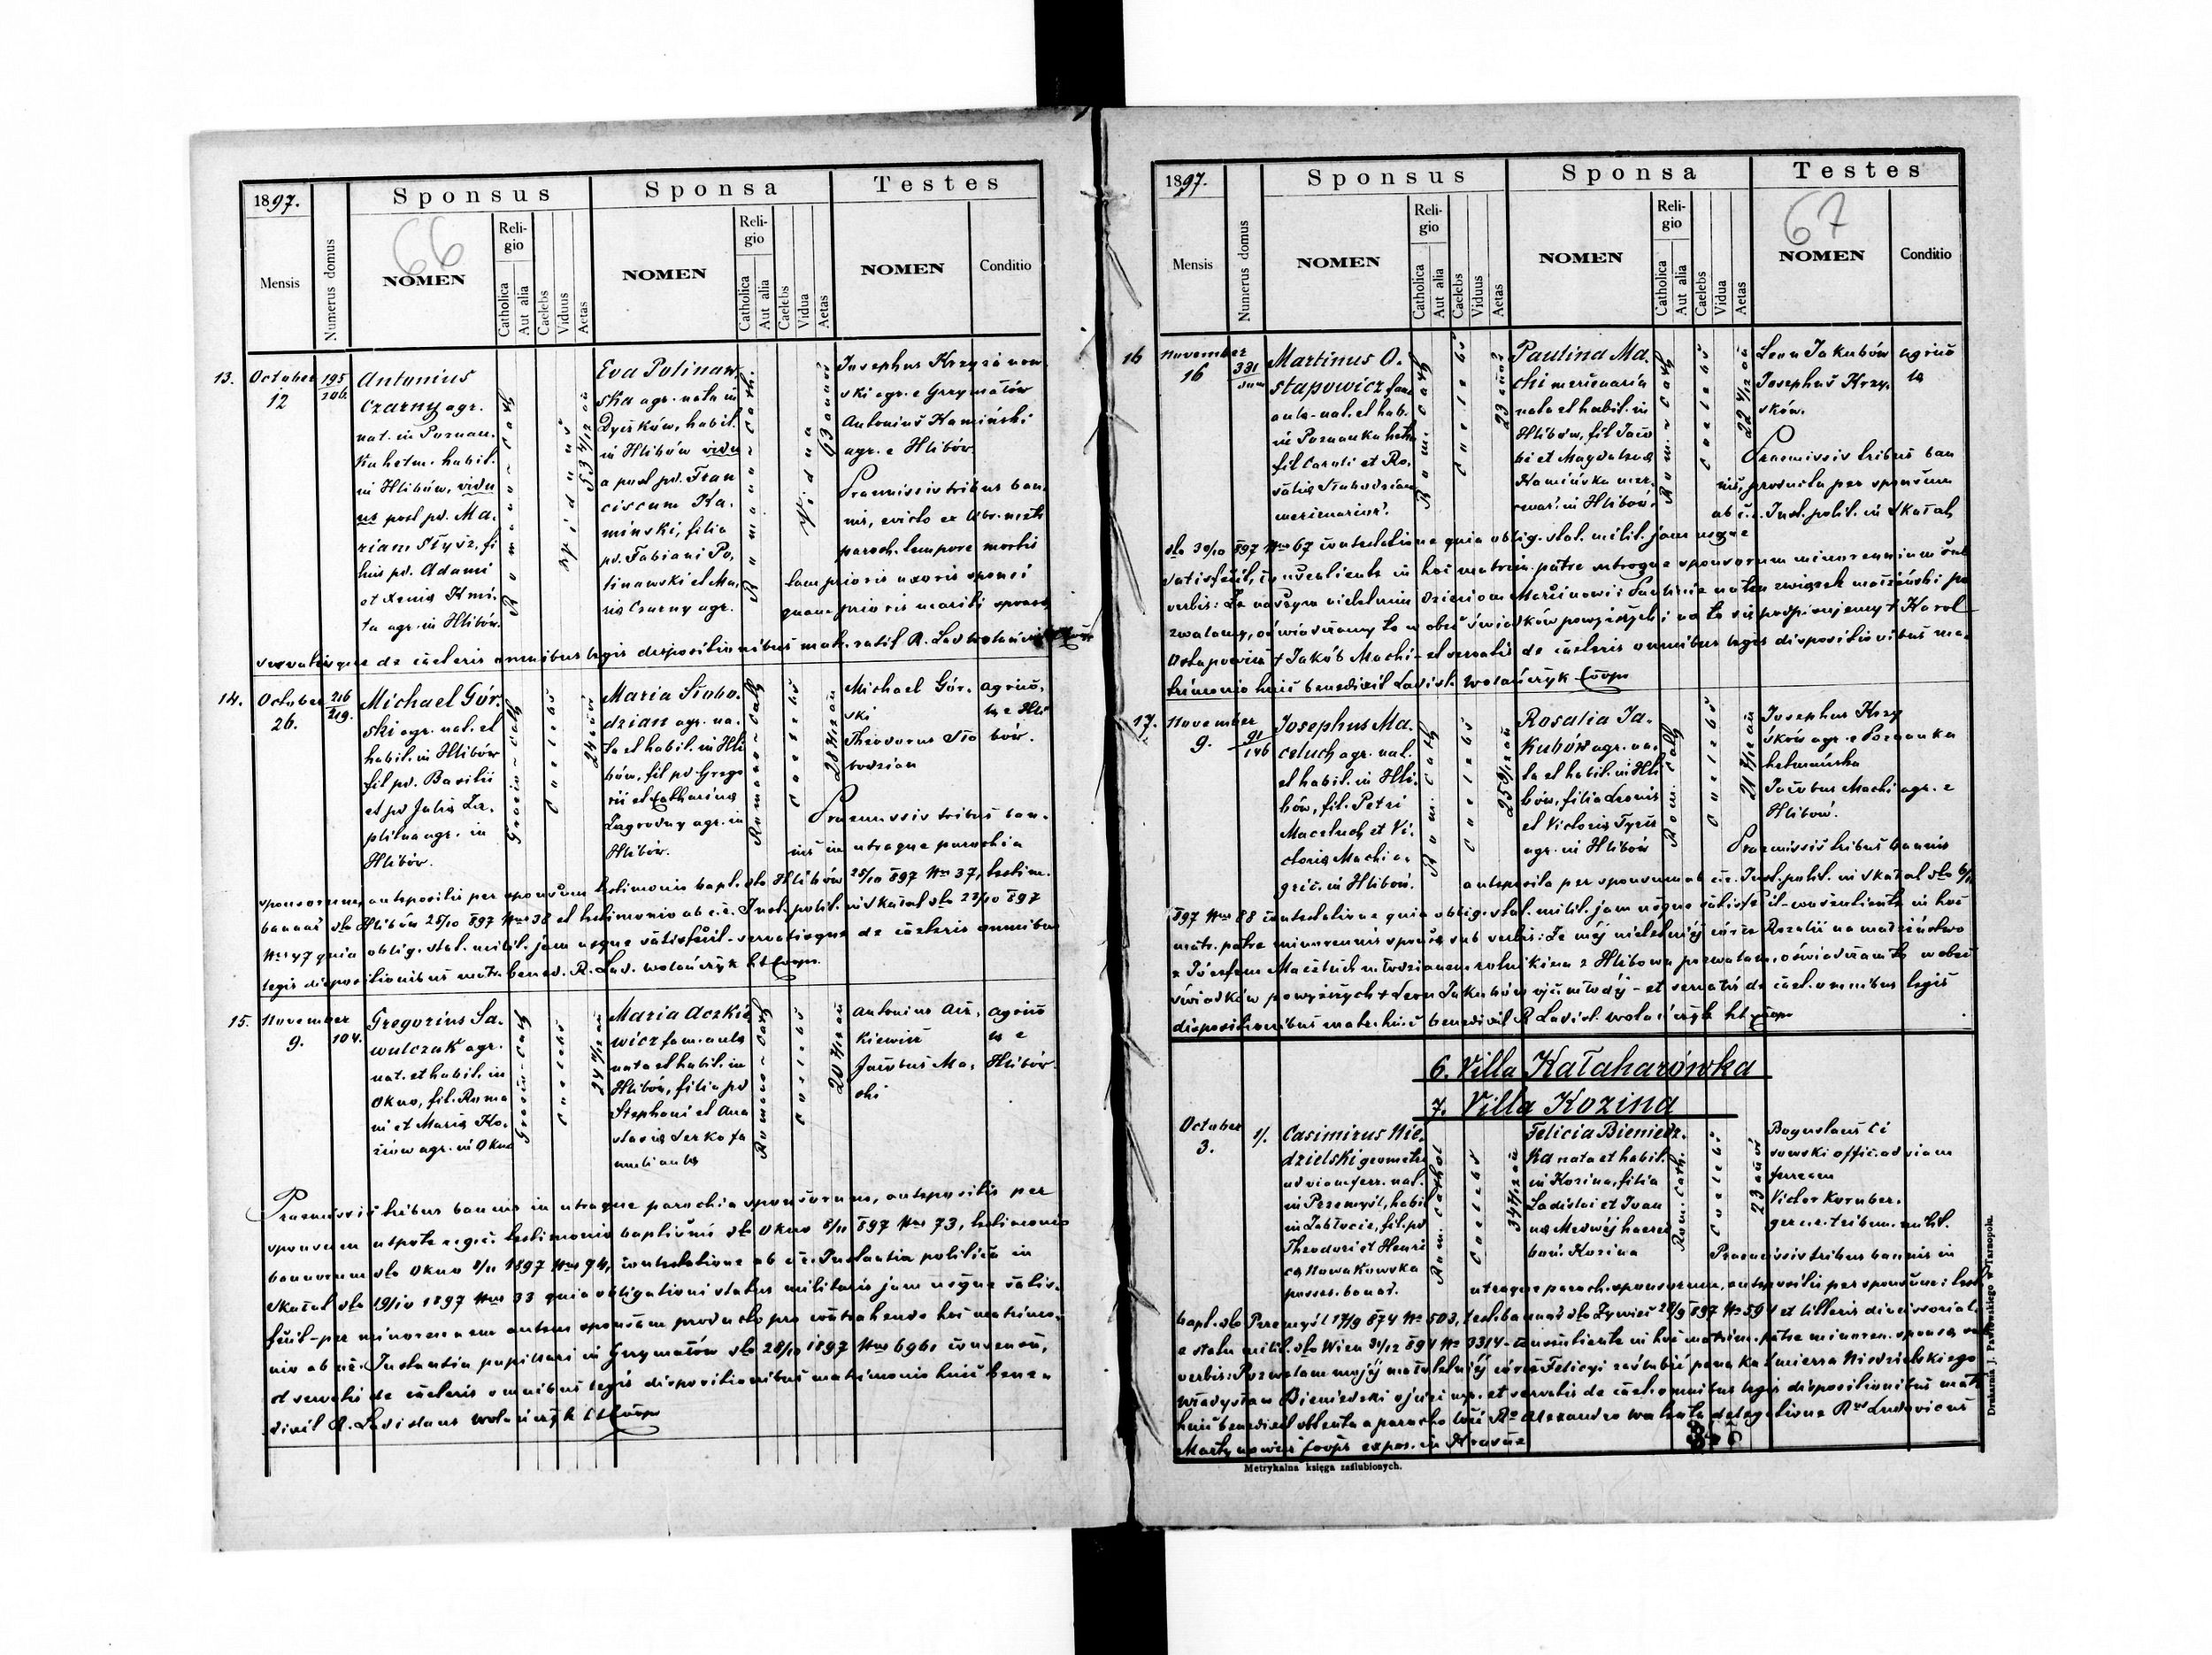 1897.
Sponsus
Sponsa
Testes
Mensis
Numerus domus
66
NOMEN
Religio
Catholica
Aut alia
Caelebs
Viduus
Aetas
NOMEN
Religio
Catholica
Aut alia
Caelebs
Vidua
Aetas
NOMEN
Conditio
13. October
12
195
Antonius
Czarny agr.
nat. in Poznan.
habit.
in Hlibów, vidu
us post pd. Ma.
riam fi
lius pd. Adami
et Xenia
agr. in Hlibów.
Romano-Cath
Viduus
53 4/12
Eva Polinaw
ska agr. nata in
habit.
in Hlibów vidu
a post pd. Fran
ciscum Ka.
minski, filia
pd. Fabiani Po,
linawski et Ma,
ria Czarny agr.
Romano-Cath.
Vidua
63
Josephus
ski agr. e Grzymałów
Antonius Kamiński
agr. e Hlibów
Praemissis tribus ban.
nis, ex libr. metr
paroch. tempore mortis
tam prioris uxoris sponsi
quam prioris mariti sponsae
servatisque de caeteris omnibus legis dispositionibus matr.
14. October
26.
216
219.
Michael Gór.
ski agr. nat. et
habit. in Hlibów
fil pd. Basilii
et pd Julia
agr. in
Hlibów.
Graeco-cath
Caelebs
24
Maria Słobo.
dzian agr. na.
ta et habit. in Hli
bów, fil pd. Grego
rii et Catharina
Zagrodny agr. in
Hlibów.
Romano-Cath
Caelebs
28
Michael Gór.
ski
Theodorus Sło
bodzian
agrico,
lae Hli
bów.
Praemissis tribus ban.
nis in utraque parochia
sponsorum, antepositis per sponsum testimonio bapt. dto Hlibów 25/10 897 Nro 37, testim.
bannor dto Hlibów 25/10 897 Nro 38 et testimonio ab c.c. Inst. polit. in Skałat dto 897
Nro 47 quia oblig. stat. milit. jam usque satisfecit - servatisque de caeteris omnibus
legis dispositionibus matr. bened. R. Lad. Wolańczyk
15. November
9.
104.
Gregorius Sa.
wulczak agr.
nat. et habit. in
Okno, fil. Roma
ni et Maria Ko.
agr. in Okno
Graeco-cath
Caelebs
24
Maria Aczkie
wicz fam. auls
nata et habit. in
Hlibów, filia pd
Stephani et Ana
stasia Serko fa
muli aulae
Romano-Cath
Caelebs
20
Antonius Acz,
kiewicz
Jacobus Ma,
chi
agrico
la e
Hlibów.
Praemissis tribus bannis in utraque parochia sponsorum, antepositis per
sponsum testimonio baptismi dto Okno 8/11 897 Nro 73, testimonio
bannorum dto Okno 8/11 1897 Nro 74, contestatione ab c.c. Instantia politica in
Skałat dto 19/10 1897 Nro 33 quia obligationi status militaris jam usque satis.
fecit - per minorennem autem sponsam producto pro contrahendo hoc matrimo.
nio ab c.c. Instantia pupillari in Grzymałów dto 28/10 1897 Nro 6961 consensu,
et servatis de caeteris omnibus legis dispositionibus matrimonio huic bene.
dixit R. Ladislaus Wolańczyk
1897.
Sponsus
Sponsa
Testes
Mensis
Numerus domus
NOMEN
Religio
Catholica
Aut alia
Caelebs
Viduus
Aetas
NOMEN
Religio
Catholica
Aut alia
Caelebs
Vidua
Aetas
67
NOMEN
Conditio
16 November
16
331
Martinus O.
stapowicz fam
auls. nat. et hab.
in Poznanka hetm
fil Caroli et Ro.
salia Słobodzian
mercenarius.
Rom. cath
Caelebs
23
Paulina Ma.
chi mercenaria
nata et habit. in
Hlibów, fil Jaco
bi et Magdalena
Kamińska mer
cenar. in Hlibów.
Rom. cath
Caelebs
22
Leon Jakubów
Josephus Krzy.
sków.
agrico
la
Praemissis tribus ban
nis, producta per sponsum
ab c.c. Inst. polit. in Skałat
dto 30/10 897 Nro 67 contestatione quia oblig. stat. milit. jam usque
satisfecit, consentiente in hoc matrim. patre utroque sponsorum minorennium sub
verbis: Że naszym nieletnim dzieciom Marcinowi i Paulinie na ten związek małżeński po
zwalamy, oświadczamy to wobec świadków powyższych i na to się podpisujemy + Karol
Ostapowicz + Jakób Machi - et servatis de caeteris omnibus legis dispositionibus ma.
trimonio huic benedixit Ladisl. Wolańczyk Coop.
17. November
9.
91
146
Josephus Ma.
celuch agr. nat.
et habit. in Hli.
bów, fil. Petri
Maceluch et Vi.
ctoria Machi a.
gric. in Hlibów.
Rom. cath
Caelebs
25
Rosalia Ja.
kubów agr. na.
ta et habit. in Hli
bów, filia Leonis
et Victoria
agr. in Hlibów
Rom. cath
Caelebs
21
Josephus Krzy
sków agr. e Poznanka
hetmańska
Jacobus Machi agr. e
Hlibów.
Praemissis tribus bannis
anteposita per sponsum ab c.c. Inst. polit. in Skałat dto 6/11
897 Nro 88 contestatione quia oblig. stat. milit. jam usque satisfecit - consentiente in hoc
matr. patre minorennis sponsae sub verbis: Że mój nieletniéj córce Rozalii na małżeństwo
z Józefem Maceluch młodzianem rolnikiem z Hlibowa pozwalam, oświadczam to wobec
świadków powyższych + Leon Jakubów ojciec młodéj - et servatis de caet. omnibus legis
dispositionibus matr. huic benedixit R Ladisl. Wolańczyk
6. Villa Kałaharówka
7. Villa Kozina
October
3.
1/.
Casimirus Nie.
dzielski geometra
ad viam ferr. nat.
in Przemyśl, habit
in Zabłocie, fil. pd
Theodori et Henri
ca Nowakowska
posses. bonor.
Rom. cathol
Caelebs
34
Felicia Bieniedz.
ka nata et habit.
in Kozina, filia
Ladislai et Joan
na Medwéj haered
bon. Kozina
Rom. cath.
Caelebs
23
Boguslaus Ci
sowski offic. ad viam
ferream
Victor Kornber.
ger c.c. tribun. milit.
Praemissis tribus bannis in
utraque paroch. sponsorum, antepositis per sponsum: test.
bapt. dto Przemyśl 17/9 874 No 503, test. bannor dto Żywiec 28/9 897 No 594 et litteris dimissorial.
e statu milit. dto Wien 31/12 894 No 3314 - consentiente in hoc matrim. patre minoren. sponsae sub
verbis: Pozwalam mojéj małoletniéj córce Felicyi zaślubić pana Kaźmierza Niedzielskiego
Władysław Bieniedzki ojciec mp. et servatis de caet. omnibus legis dispositionibus matr
huic benedixit obtenta a parocho loci Rdo Alexandro delegatione Rdus Ludovicus
Martynowicz Coops expos. in Krasne
Metrykalna księga zaślubionych.
Drukarnia J. Pawłowskiego w Tarnopolu.